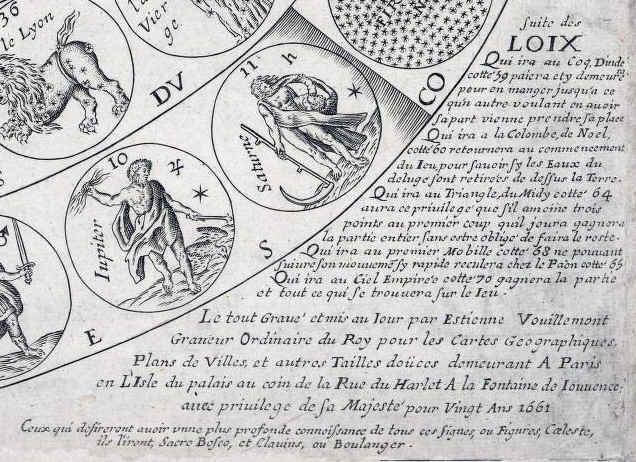 36
le Lyon
Vier
ge
FIR
N
DV
CO
11 ♄
Saturne
10 ♃
Iupiter
♂
S
E
suite des
LOIX
Qui ira au Coq, Dinde
cotté 59 paiera et y demeure
pour en manger jusqu'a ce
qu'n autre voulant en avoir
sa part vienne prendre sa place
Qui ira a la Colombe, de Noel,
cotté 60 retournera au commencement
du Ieu, pour savoir sy les Eaux du
deluge sont retirées de dessus la Terre.
Qui ira au Triangle, du Midy cotté 64
aura ce privilege que s'il ameine trois
points au premier coup qu'il joura gagnera
la partie entier sans estre obligé de faira le reste
Qui ira au premier Mobille cotté 68 ne pouvant
suivre son mouvemé sy rapide reculera chez le Paon cotté 65
Qui ira au Ciel Empirée cotté 70 gagnera la partie
et tout ce qui se trouvera sur le Ieu.
Le tout Gravé et mis au Iour par Estienne Vouillemont
Graveur Ordinaire du Roy pour les Cartes Geographiques,
Plans de Villes, et autres Tailles doüces demeurant A Paris
en L'Isle du palais au coin de la Rue du Harlet A la Fontaine de Iouvence;
avec privilege de sa Majesté pour Vingt Ans 1661
Ceux qui desireront avoir vnne plus profonde connoissance de tous ces signes, ou Figures, Cœleste,
ils liront, Sacro Bosco, et Clavius, ou Boulanger.